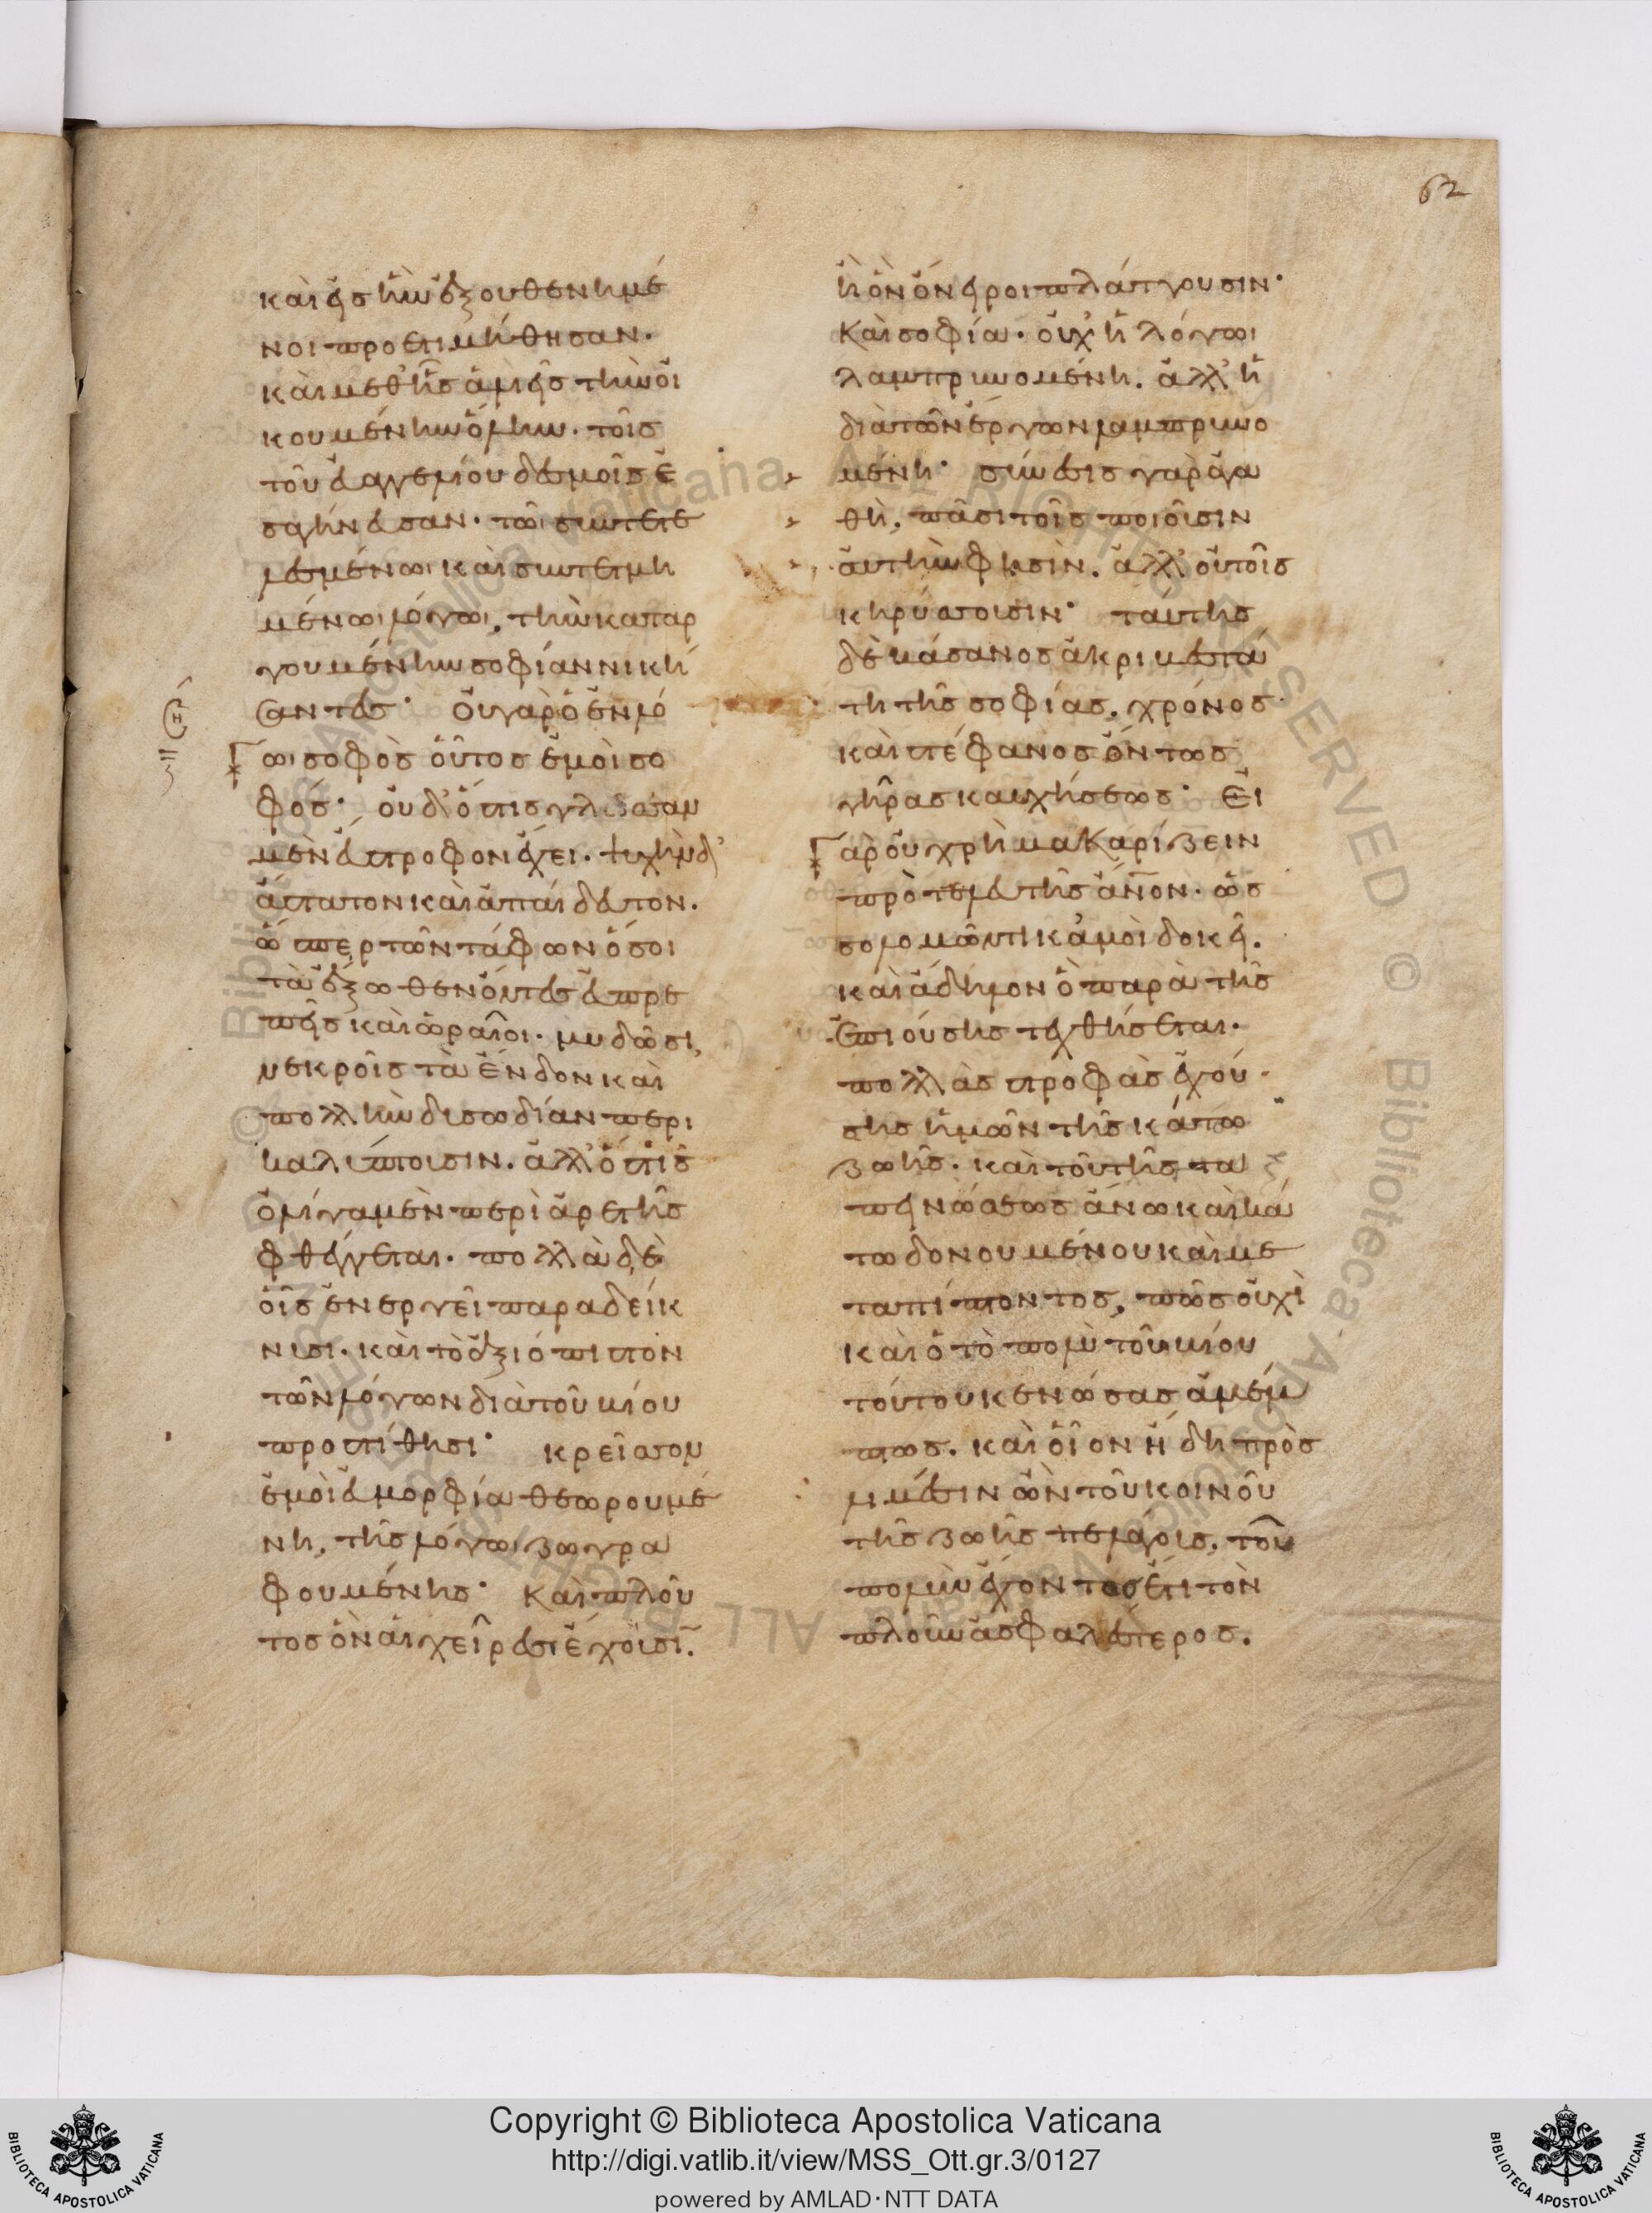 62
καὶ εἰς ἣν ἐξουθενημέ
νοι προετιμήθησαν·
καὶ μεθ' ἧς ἁλιεῖς τὴν οἰ
κουμένην ὅλην· τοῖς
τοῦ εὐαγγελίου δεσμοῖς ἐ
σαγήνευσαν· τῶι συντετε
λεσμένωι καὶ συντετμη
μένωι λόγωι, τὴν καταρ
γουμένην σοφίαν νική
σαντες· Οὐ γὰρ ὁ ἐν λό
γωι σοφὸς οὗτος ἐμοὶ σο
φός· οὐδ' ὅστις γλῶσσαν
μὲν εὔστροφον ἔχει· ψυχὴν δ'
ἄστατον καὶ ἀπαίδευτον.
ὥσπερ τῶν τάφων ὅσοι
τὰ ἔξωθεν ὄντες εὐπρε
πεῖς καὶ ὡραῖοι· μυδῶσι,
νεκροῖς τὰ ἔνδον καὶ
πολλὴν δυσωδίαν περι
καλύπτουσιν. ἀλλ' ὅστις
ὀλίγα μὲν περὶ ἀρετῆς
φθέγγεται· πολλὰ δὲ
οἷς ἐνεργεῖ παραδείκ
νυσι· καὶ τὸ ἀξιόπιστον
τῶν λόγων διὰ τοῦ βίου
προστίθησι· κρείσσων
ἐμοὶ εὐμορφία θεωρουμέ
νη, τῆς λόγωι ζωγρα
φουμένης· Καὶ πλοῦ
τος ὃν αἱ χεῖρες ἔχουσῑ.
ἢ ὃν ὄνειροι πλάττουσιν·
Καὶ σοφία· οὐχ' ἡ λόγωι
λαμπρυνομένη. ἀλλ' ἡ
διὰ τῶν ἔργων λαμπρυνο
μένη· σύνεσις γὰρ ἀγα
θὴ, πᾶσι τοῖς ποιοῦσιν
αὐτὴν φησίν. ἀλλ' οὐ τοῖς
κηρύττουσιν· ταύτης
δὲ βάσανος ἀκριβεστά
τη τῆς σοφίας, χρόνος·
καὶ στέφανος ὄντως
γῆρας καυχήσεως· Εἰ
γὰρ οὐ χρὴ μακαρίζειν
πρὸ τελευτῆς ἄν̅ο̅ν· ὡς
σολομῶντι κἀμοὶ δοκεῖ.
καὶ ἄδηλον ὃ παρὰ τῆς
ἐπιούσης τεχθήσεται·
πολλὰς στροφὰς ἐχού
σης ἡμῶν τῆς κάτω
ζωῆς· καὶ τοῦ τῆς τα
πεινώσεως ἄνω καὶ κά
τω δονουμένου καὶ με
ταπίπτοντος, πῶς οὐχὶ
καὶ ὁ τὸ πολὺ τοῦ βίου
τούτου κενώσας ἀμέμ
πτως. καὶ οἷον ἤδη πρὸς
λιμέσιν ὢν τοῦ κοινοῦ
τῆς ζωῆς πελάγους, τοῦ
πολὺν ἔχοντος ἔτι τὸν
πλοῦν ἀσφαλέστερος.
Copyright © Biblioteca Apostolica Vaticana
http://digi.vatlib.it/view/MSS_Ott.gr.3/0127
powered by AMLAD·NTT DATA
BIBLIOTECA APOSTOLICA VATICANA
BIBLIOTECA APOSTOLICA VATICANA